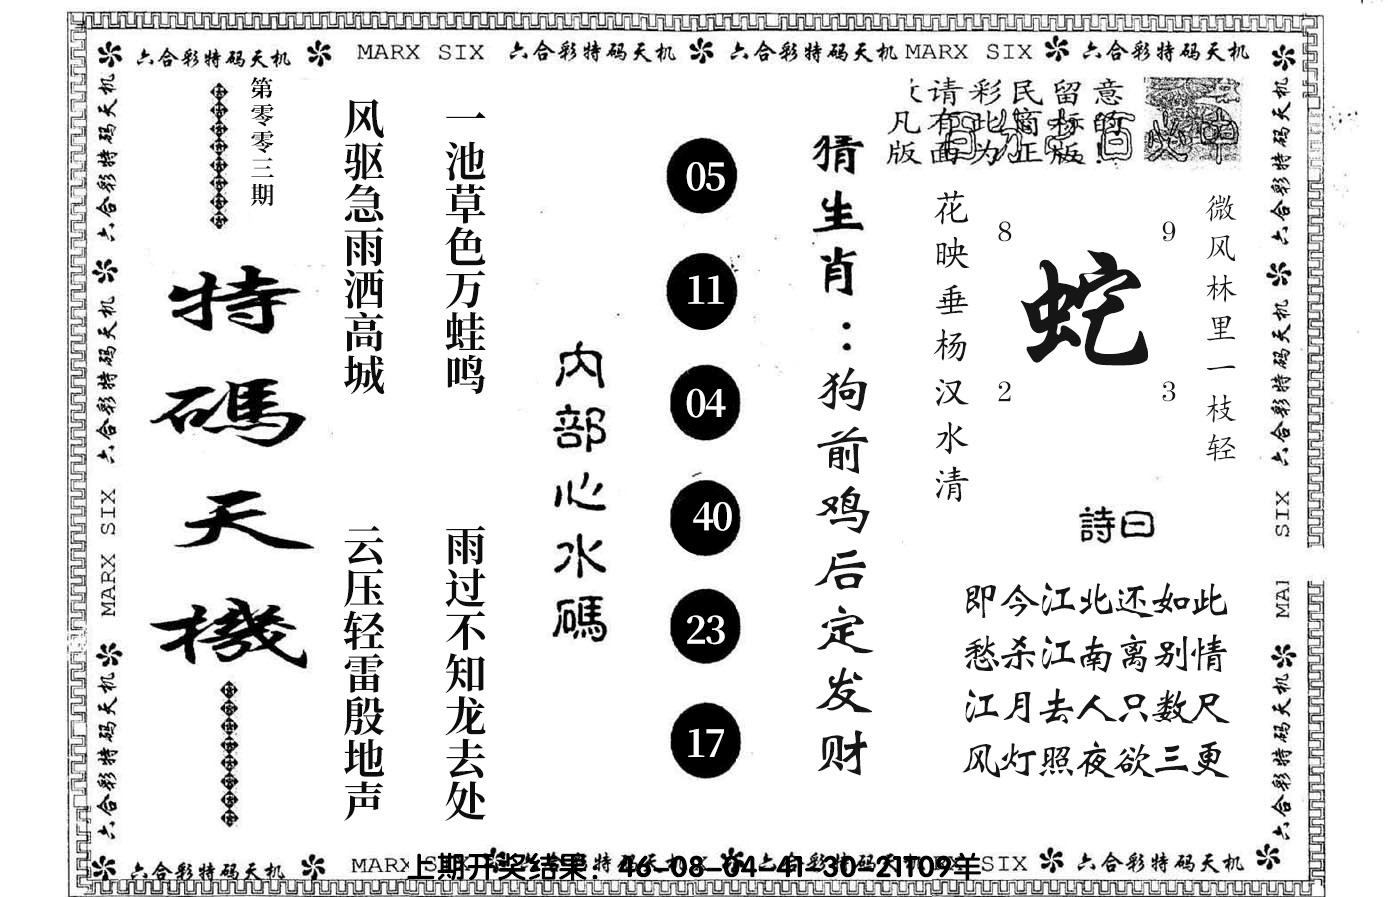 六合彩特码天机 MARX SIX 六合彩特码天机 六合彩特码天机 MARX SIX 六合彩特码天机
六合彩特码天机
六合彩特码天机
MARX SIX
六合彩特码天机
第零零三期
特碼天機
风驱急雨洒高城
云压轻雷殷地声
一池草色万蛙鸣
雨过不知龙去处
内部心水碼
05
11
04
40
23
17
猜生肖：狗前鸡后定发财
请彩民留意
凡有此商标的
版面为正版!
花映垂杨汉水清
微风林里一枝轻
8
9
蛇
2
3
詩曰
即今江北还如此
愁杀江南离别情
江月去人只数尺
风灯照夜欲三更
六合彩特码天机
六合彩特码天机
SIX
MA
六合彩特码天机
六合彩特码天机 MARX 六合彩特码天机 SIX 六合彩特码天机
上期开奖结果：46-08-04-41-30-21T09羊